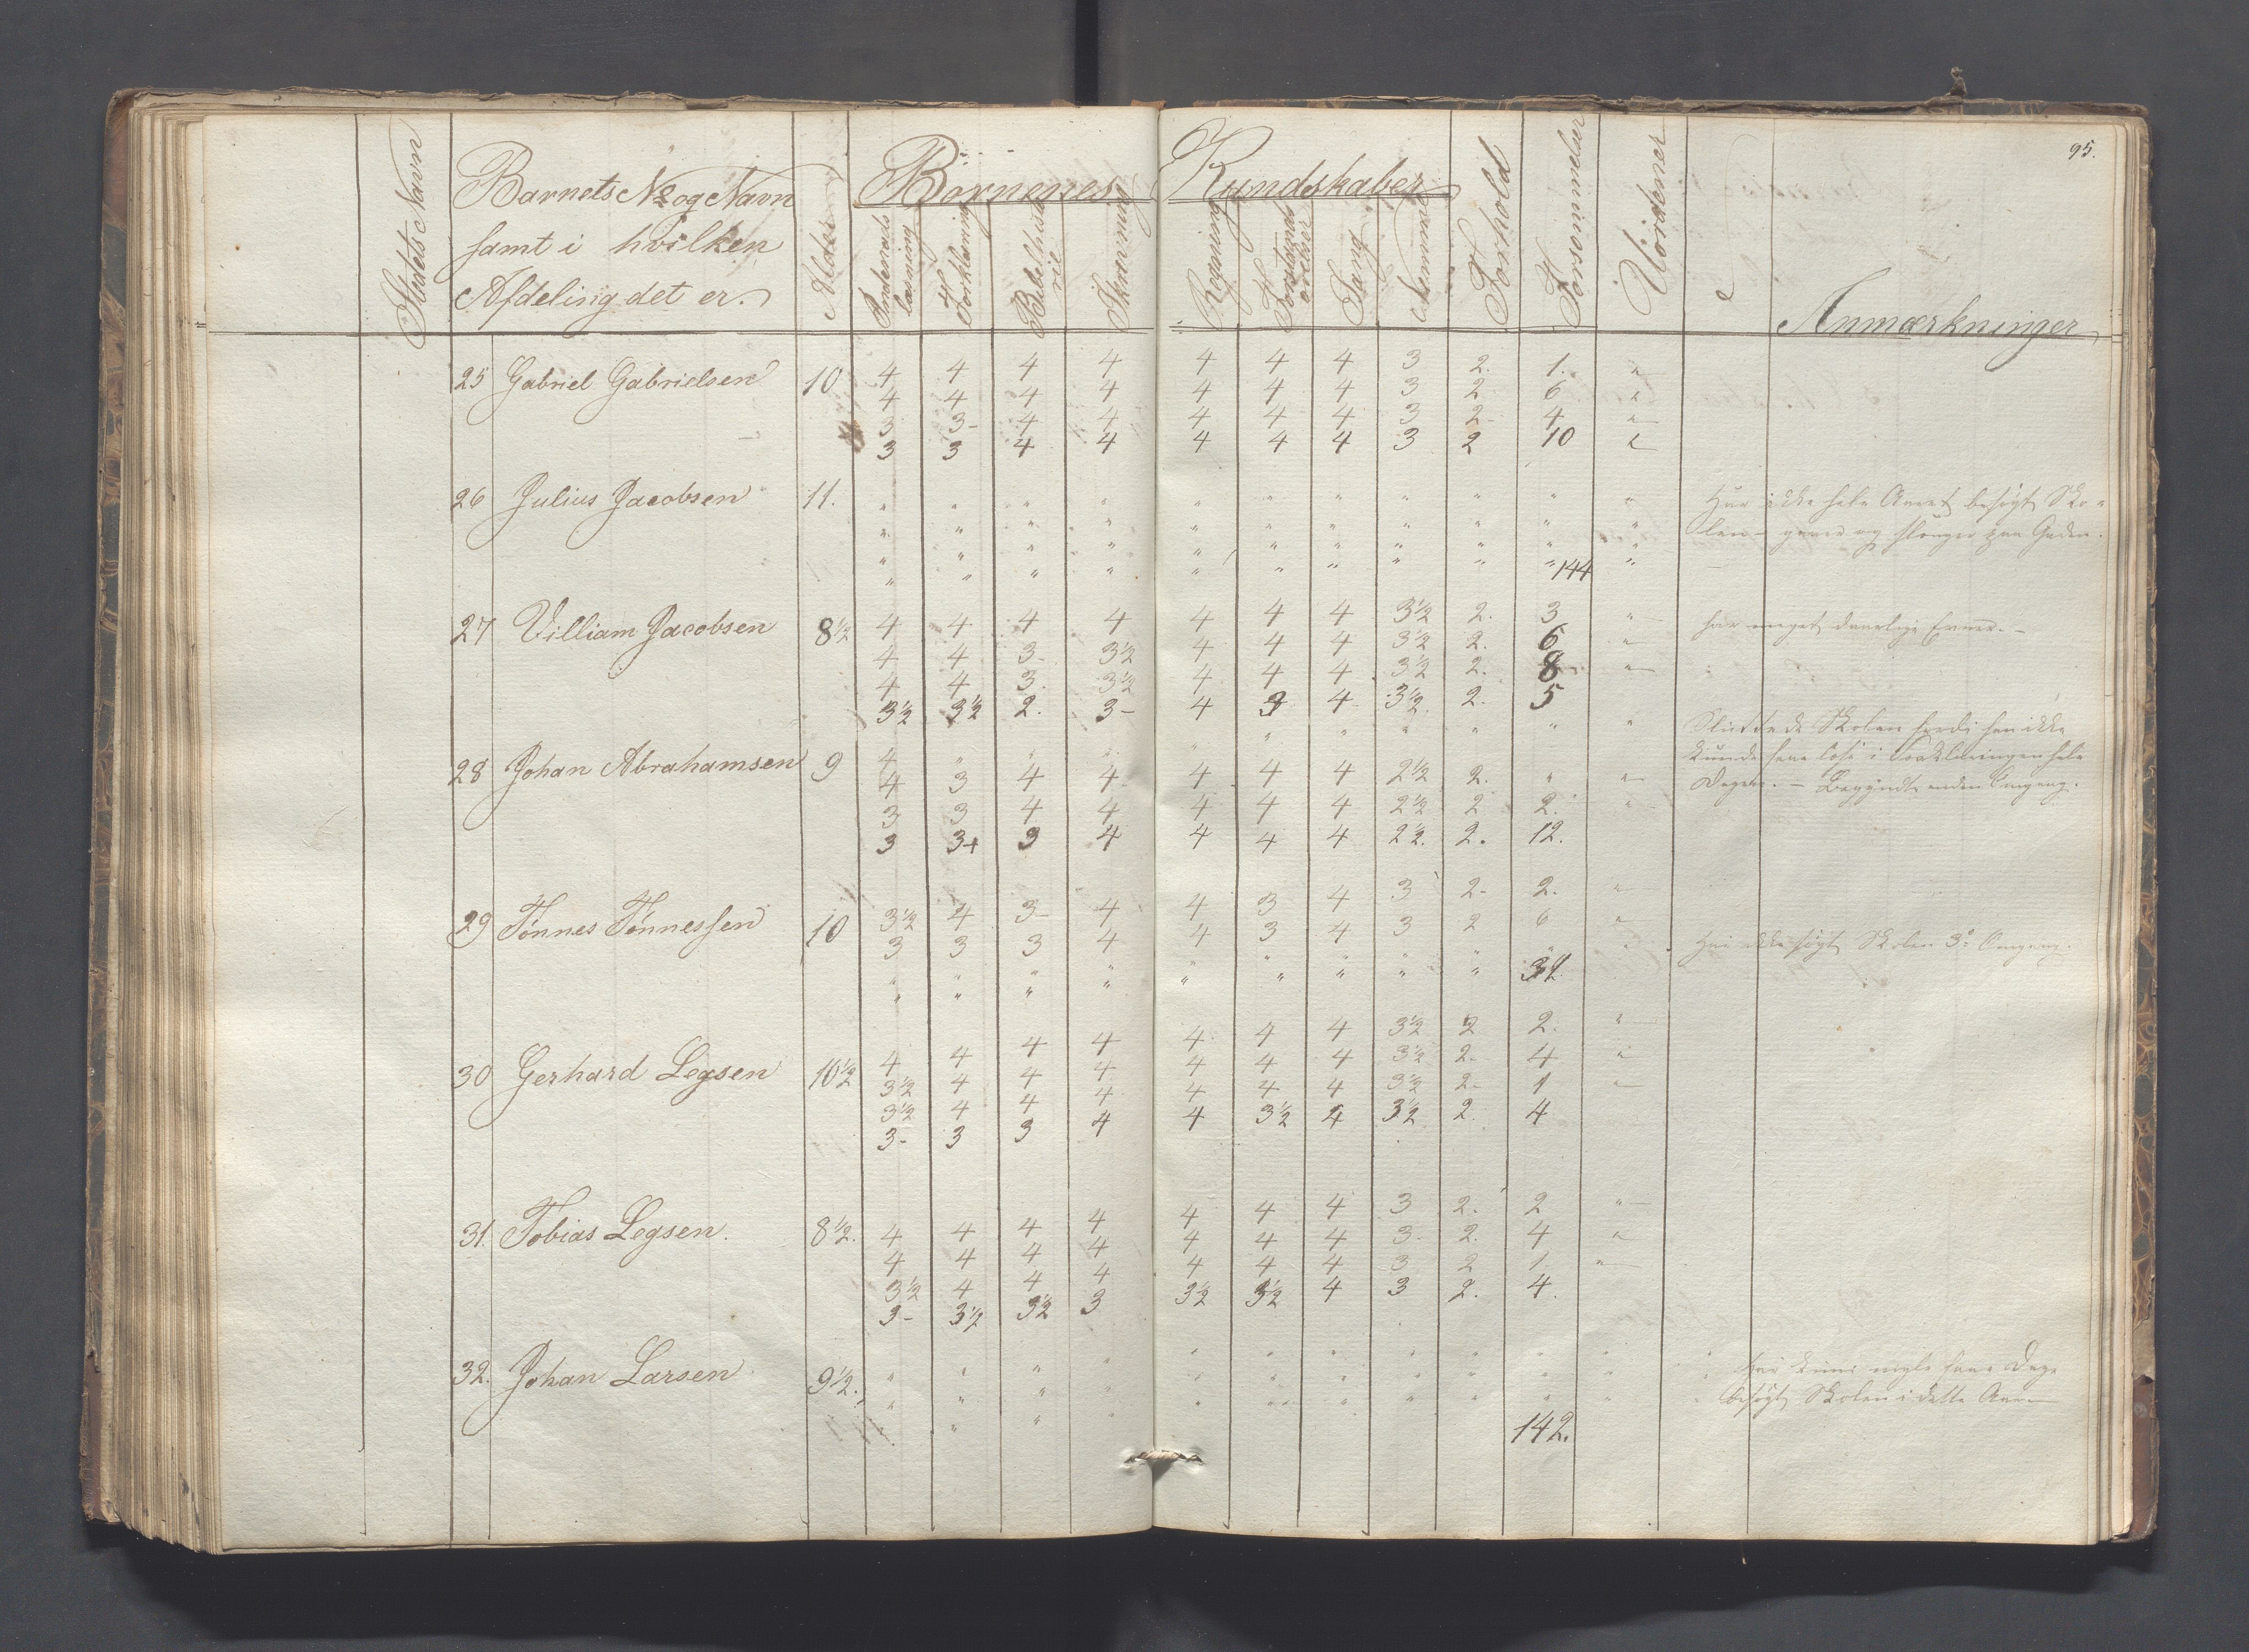 95.
Stedets Navn
Barnets No og Navn
samt i hvilken
Afdeling det er.
Alder
Børnenes Kundskaber
Indenads
læsning
Forklaring
Bibelhisto
rie
Skrivning
Regning
Forstands
øvelser
Sang
Nemme
Forhold
Forsømmelser
Uordener
Anmærkninger
25 Gabriel Gabrielsen 10 4 4 4 4 4 4 4 3 2. 1. "
4 4 4 4 4 4 4 3 2 6 "
3 3- 4 4 4 4 4 3 2- 4 "
3 3 4 4 4 4 4 3 2 10 "
26 Julius Jacobsen 11. " " " " " " " " " " " Har ikke hele Aaret besøgt Sko-
" " " " " " " " " " " len - og paa Gaden.
" " " " " " " " " " "
" " " " " " " " " " 144 "
27 Villiam Jacobsen 8½ 4 4 4 4 4 4 4 3½ 2. 3 " har meget daarlige Evner. -
4 4 3- 3½ 4 4 4 3½ 2. 6 "
4 4 3. 3½ 4 4 4 3½ 2. 8 "
3½ 3½ 2. 3- 4 3 4 3½ 2. 5
28 Johan Abrahamsen 9 4 " " " " " " " " " " Sluttede Skolen fordi han ikke
4 3 4 4 4 4 4 2½ 2. " " kunde læse i Forklaringen hele
3 3 4 4 4 4 4 2½ 2 2. " Dagen. - Begyndte anden Omgang.
3 3+ 3 4 4 4 4 2½. 2. 12.
29 Tønnes Tønnessen 10 3½ 4 3- 4 4 3 4 3 2- 2. "
3 3 3 4 4 3 4 3 2 6 "
" " " " " " " " " " " Har ikke søgt Skolen 3die Omgang.
" " " " " " " " " 32
30 Gerhard Legsen 10½ 4 4 4 4 4 4 4 3½ 2 2. "
3½ 4 4 4 4 4 4 3½ 2- 4 "
3½ 4 4 4 4 4 4 3½ 2- 1 "
3- 3 3 4 4 3½ 4 3½ 2. 4
31. Tobias Legsen. 8½. 4 4 4 4 4 4 4 3 2. 2 "
4 4 4 4 4 4 4 3. 2. 4 "
3½ 4 4 4 4 4 4 3 2 1. "
3- 3½ 3½ 3 3½ 3½ 4 3 2. 4.
32. Johan Larsen 9½. " " " " " " " " " " " har kuns nogle faae Dage
" " " " " " " " " " " besøgt Skolen i dette Aar
" " " " " " " " " " "
142.